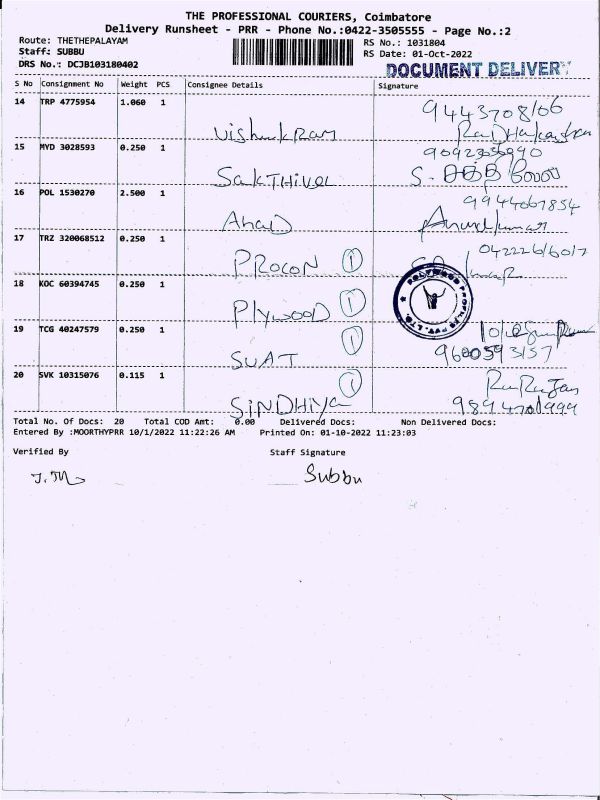 THE PROFESSIONAL COURIERS, Coimbatore
Delivery Runsheet - PRR - Phone No.:0422-3505555 - Page No.:2
Route: THETHEPALAYAM
RS No.: 1031804
Staff: SUBBU
RS Date: 01-Oct-2022
DRS No.: DCJB103180402
DOCUMENT DELIVERY
S No Consignment No Weight PCS Consignee Details Signature
14 TRP 4775954 1.060 1
15 MYD 3028593 0.250 1 SakTHivel S.
16 POL 1530270 2.500 1 AnaD Anandkumar
17 TRZ 320068512 0.250 1 PROCON 1
18 KOC 60394745 0.250 1 Plywood 1
19 TCG 40247579 0.250 1 SUAT 1
20 SVK 10315076 0.115 1 SiNDHiya 1
Total No. Of Docs: 20 Total COD Amt: 0.00 Delivered Docs: Non Delivered Docs:
Entered By :MOORTHYPRR 10/1/2022 11:22:26 AM Printed On: 01-10-2022 11:23:03
Verified By Staff Signature
Subbu